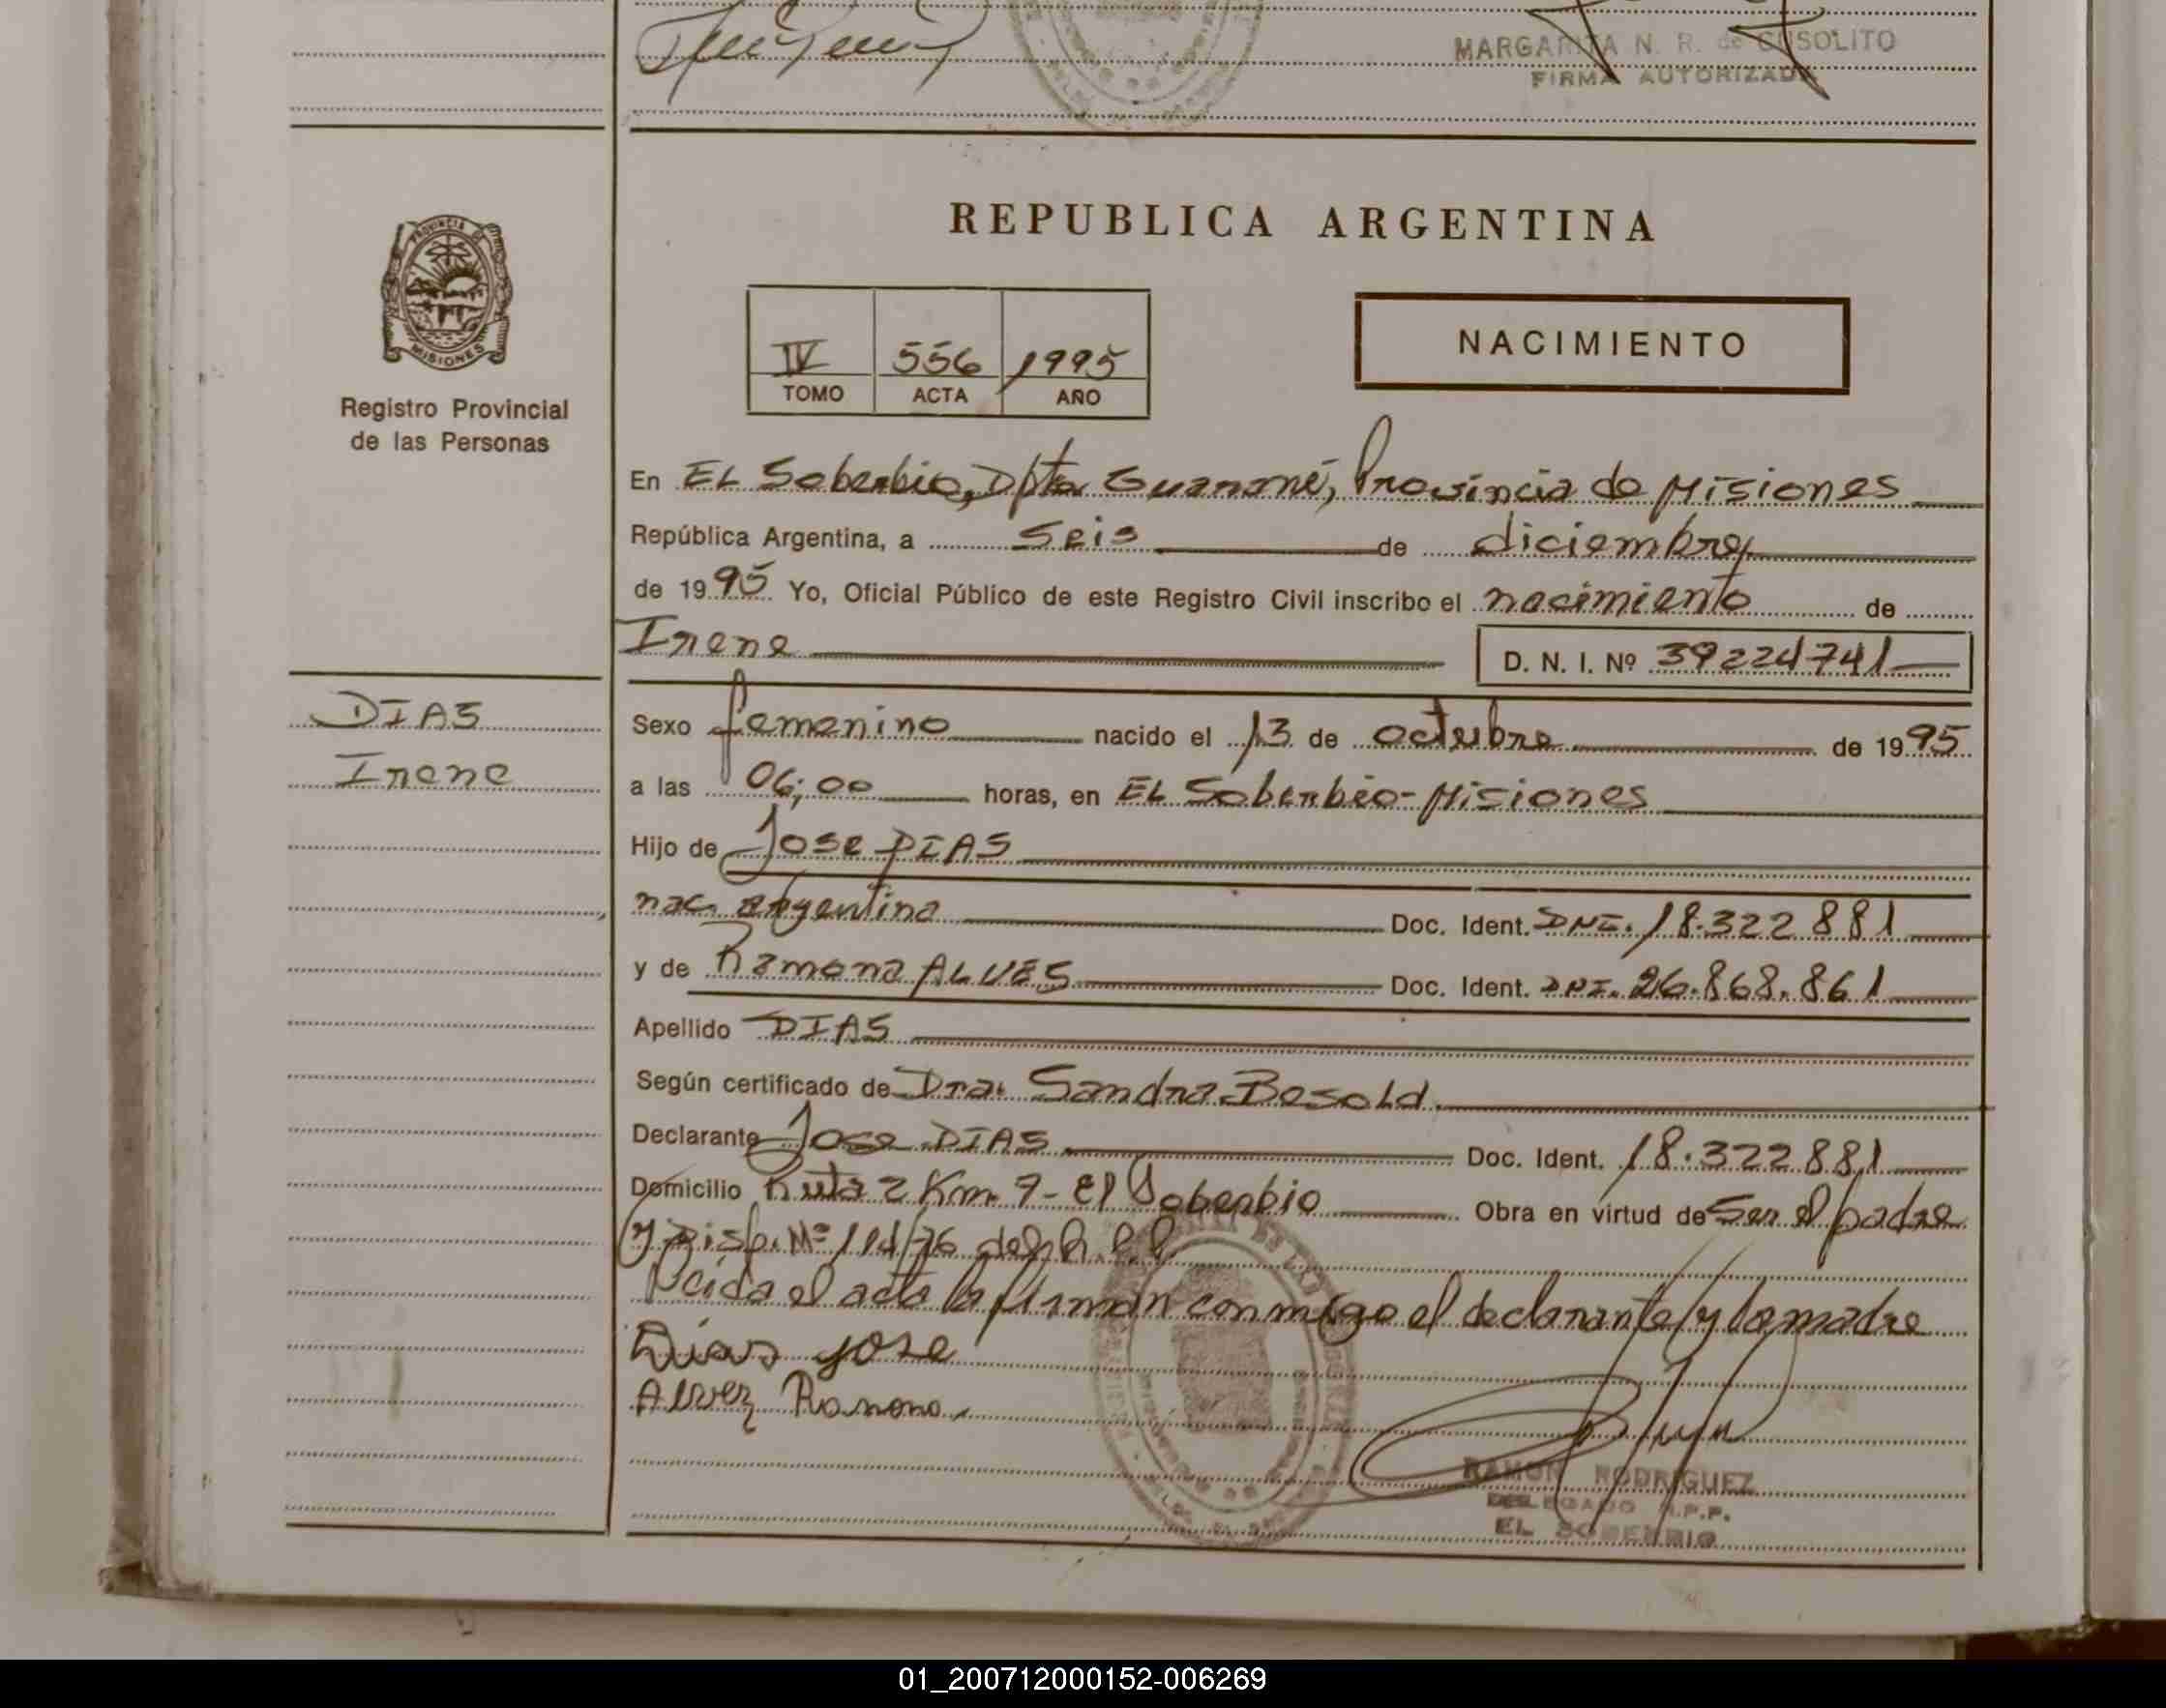 MARGARITA N. R. de CUSOLITO
FIRMA AUTORIZADA
PROVINCIA DE
MISIONES
Registro Provincial
de las Personas
REPUBLICA ARGENTINA
IV 556 1995
TOMO ACTA AÑO
NACIMIENTO
En EL Soberbio, Dpto Guaraní, Provincia de Misiones
República Argentina, a seis de diciembre
de 1995 Yo, Oficial Público de este Registro Civil inscribo el nacimiento de
Irene D. N. I. Nº 39224741
DIAS
Irene
Sexo femenino nacido el 13 de octubre de 1995
a las 06;00 horas, en EL Soberbio-Misiones
Hijo de Jose DIAS
nac. argentina Doc. Ident. DNI. 18.322881
y de Ramona ALVES Doc. Ident. DNI. 26.868.861
Apellido DIAS
Según certificado de Dra. Sandra Besold
Declarante Jose DIAS Doc. Ident. 18.322881
Domicilio Ruta 2 Km. 9- El Soberbio Obra en virtud de Ser el padre
y Disp. Nº 114/76 del R.P.P.
Leida el acta la firman conmigo el declarante y la madre
Dias jose
Alvez Ramona
RAMON RODRIGUEZ
DELEGADO R.P.P.
EL SOBERBIO
01_200712000152-006269